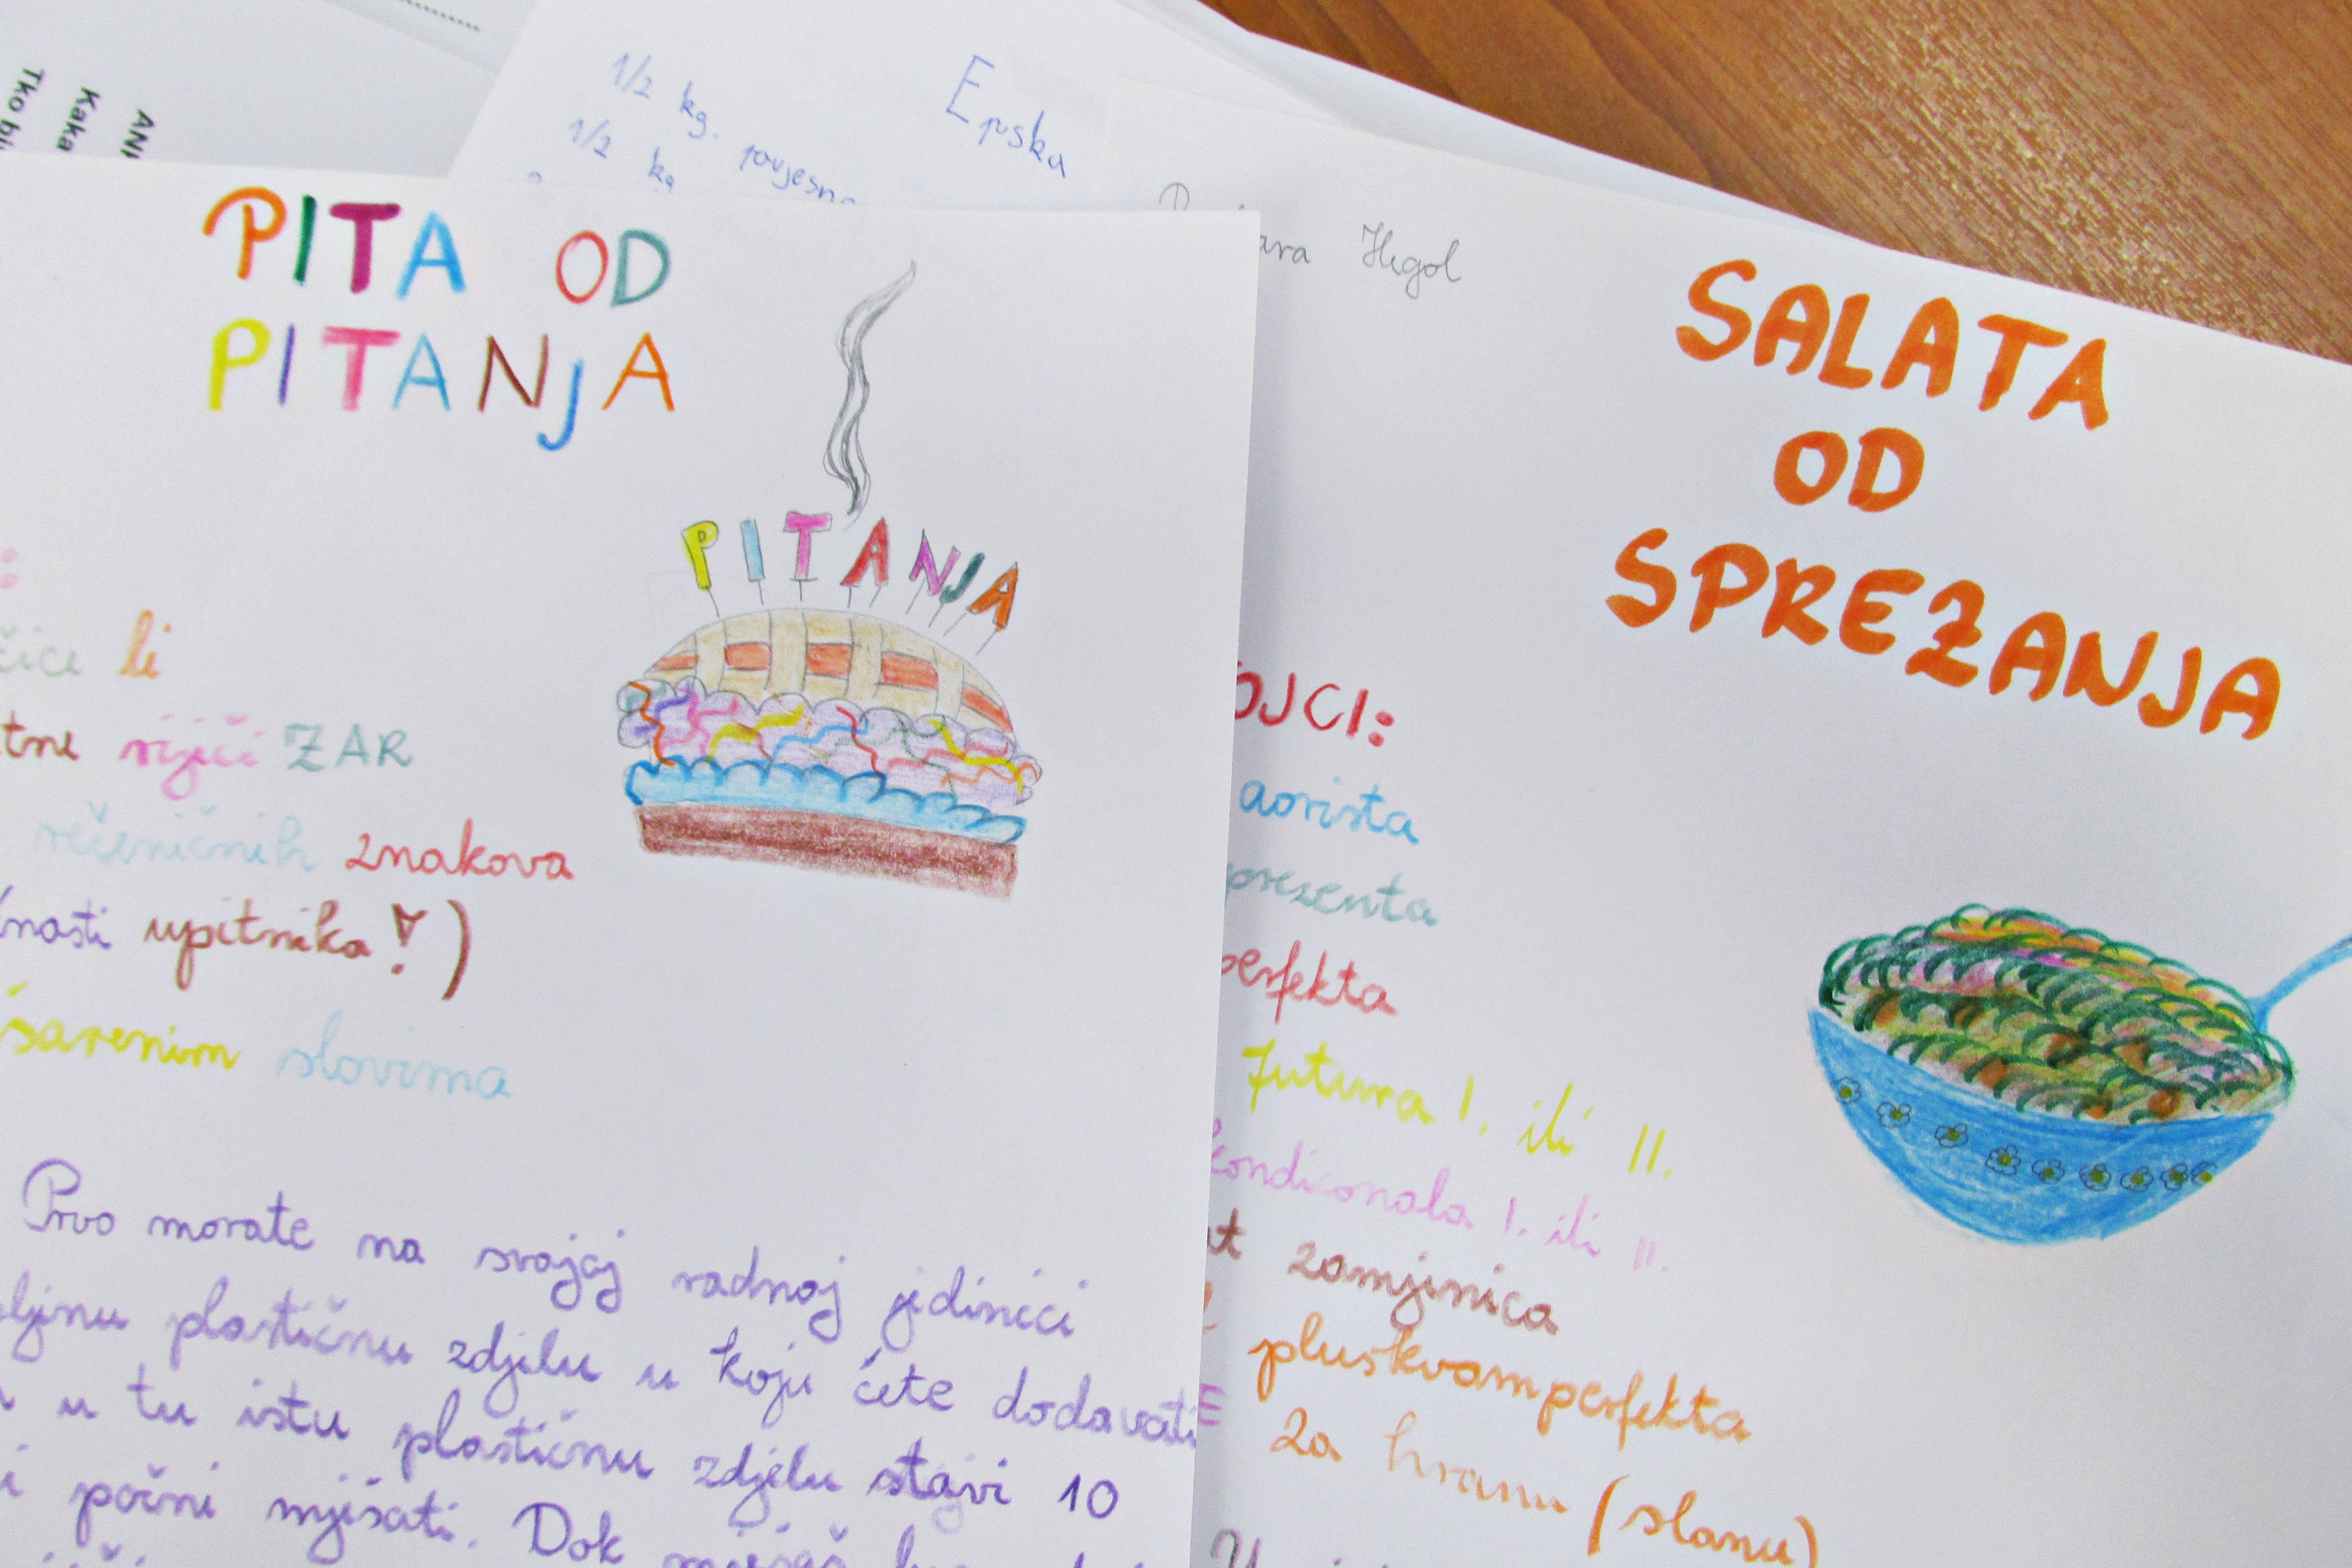 ANI
Kaka
Tko bi
1/2 kg. povjesn
1/2 kg
Epska
PITA OD
PITANJA
PITANJA
čice li
tne riječi ZAR
rečeničnih znakova
nosti upitnika?)
šarenim slovima
Prvo morate na svojoj radnoj jedinici
plastičnu zdjelu u koju ćete dodavati
u tu istu plastičnu zdjelu stavi 10
i počni mješati. Dok
ara Hegol
SALATA
OD
SPREZANJA
OJCI:
aorista
prezenta
perfekta
futura I. ili II.
kondicionala I. ili II.
zamjenica
pluskvamperfekta
za hranu (slanu)